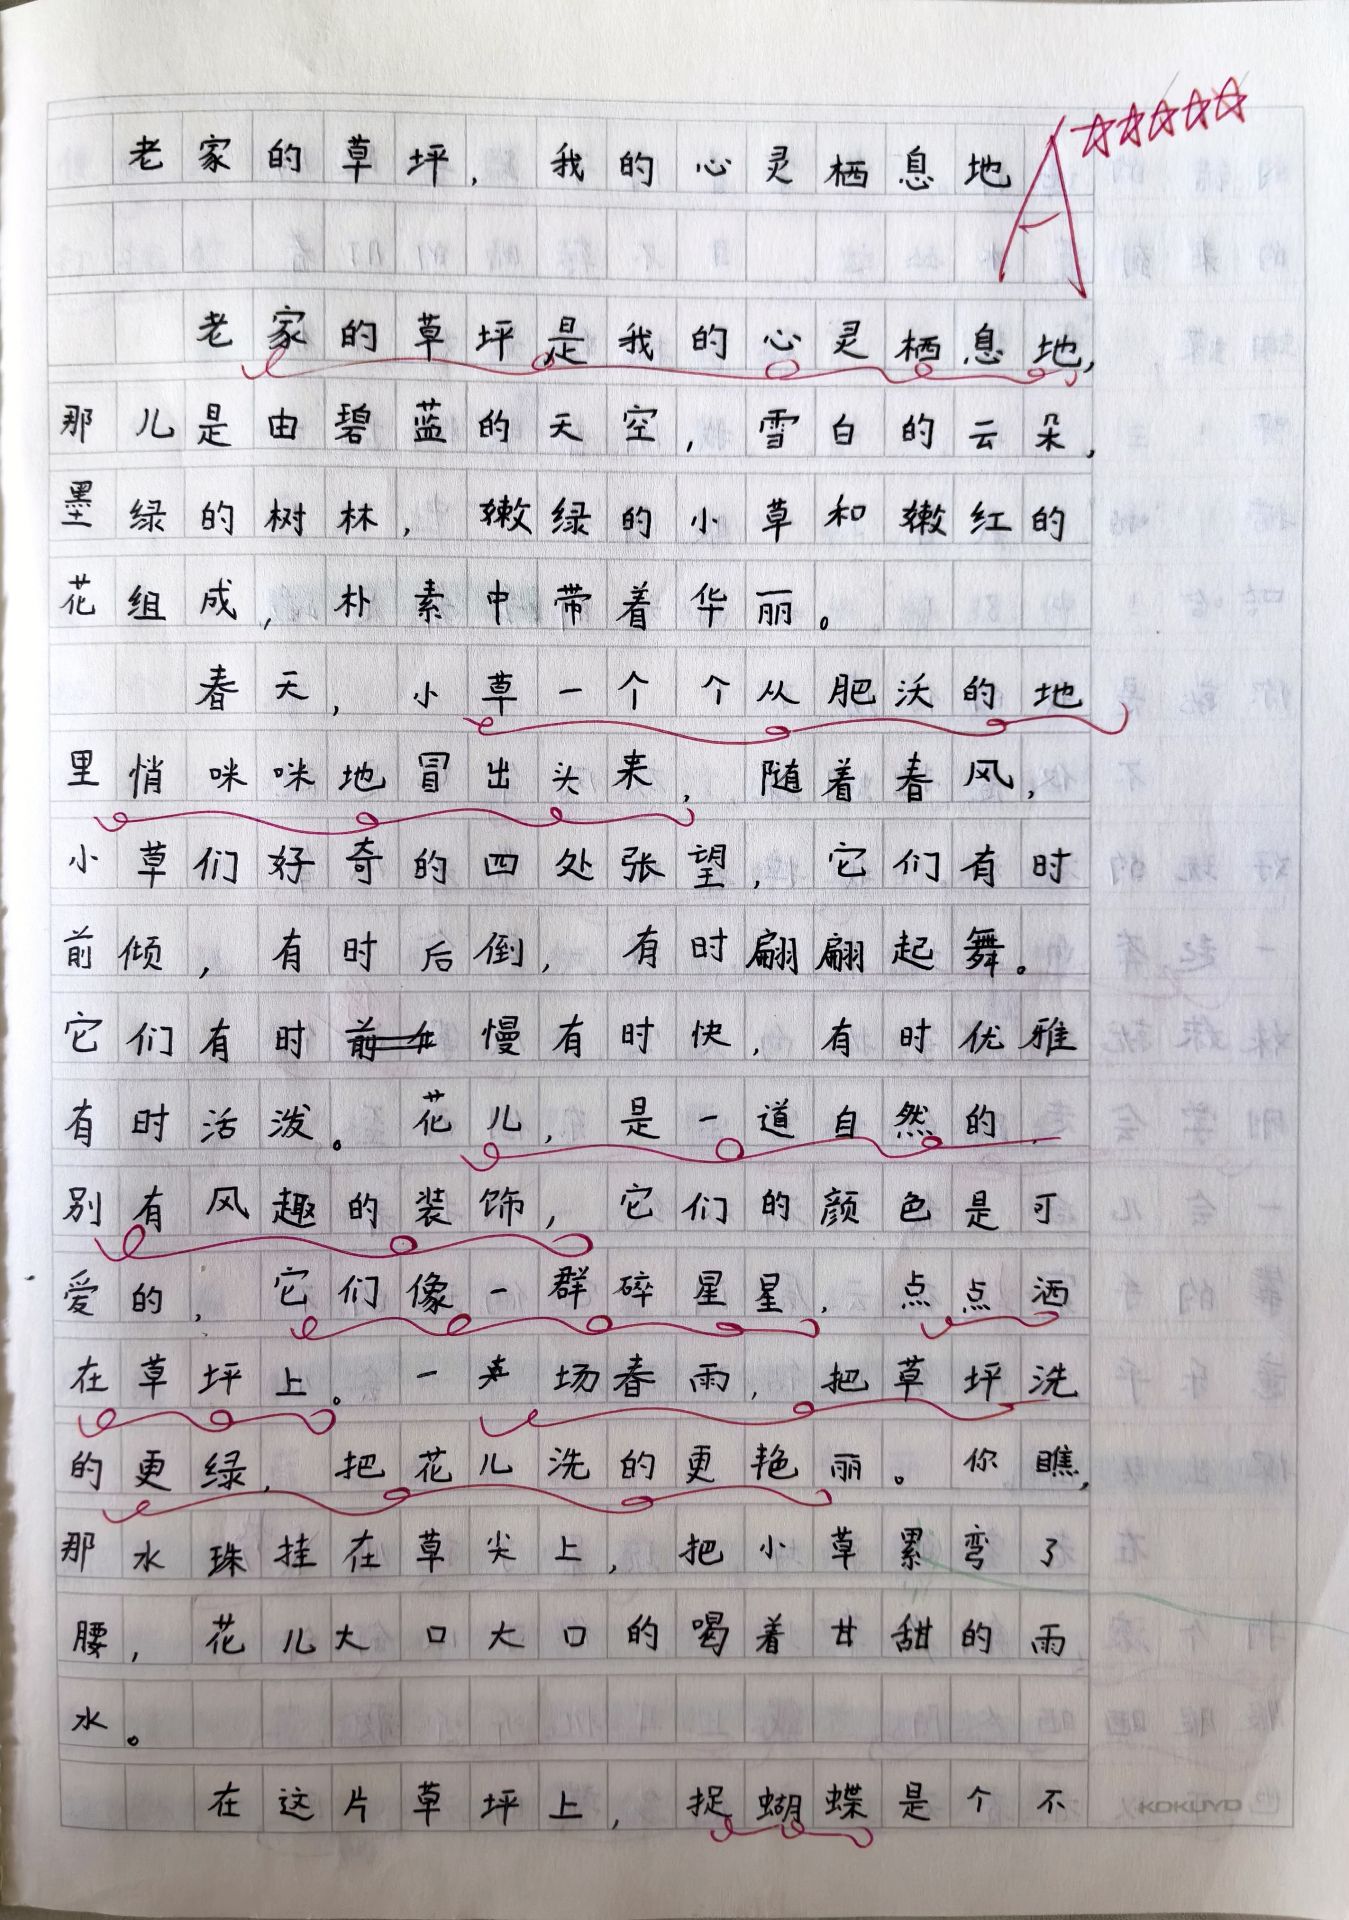 老家的草坪，我的心灵栖息地
A☆☆☆☆☆
老家的草坪是我的心灵栖息地，
那儿是由碧蓝的天空，雪白的云朵，
墨绿的树林，嫩绿的小草和嫩红的
花组成，朴素中带着华丽。
春天，小草一个个从肥沃的地
里悄咪咪地冒出头来，随着春风，
小草们好奇的四处张望，它们有时
前倾，有时后倒，有时翩翩起舞。
它们有时慢有时快，有时优雅
有时活泼。花儿，是一道自然的
别有风趣的装饰，它们的颜色是可
爱的，它们像一群碎星星，点点洒
在草坪上。一场春雨，把草坪洗
的更绿，把花儿洗的更艳丽。你瞧，
那水珠挂在草尖上，把小草累弯了
腰，花儿大口大口的喝着甘甜的雨
水。
在这片草坪上，捉蝴蝶是个不
KOKUYO